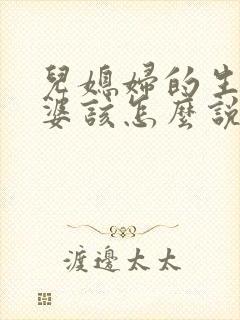 兒媳婦的生
婆該怎麼說
渡邊太太